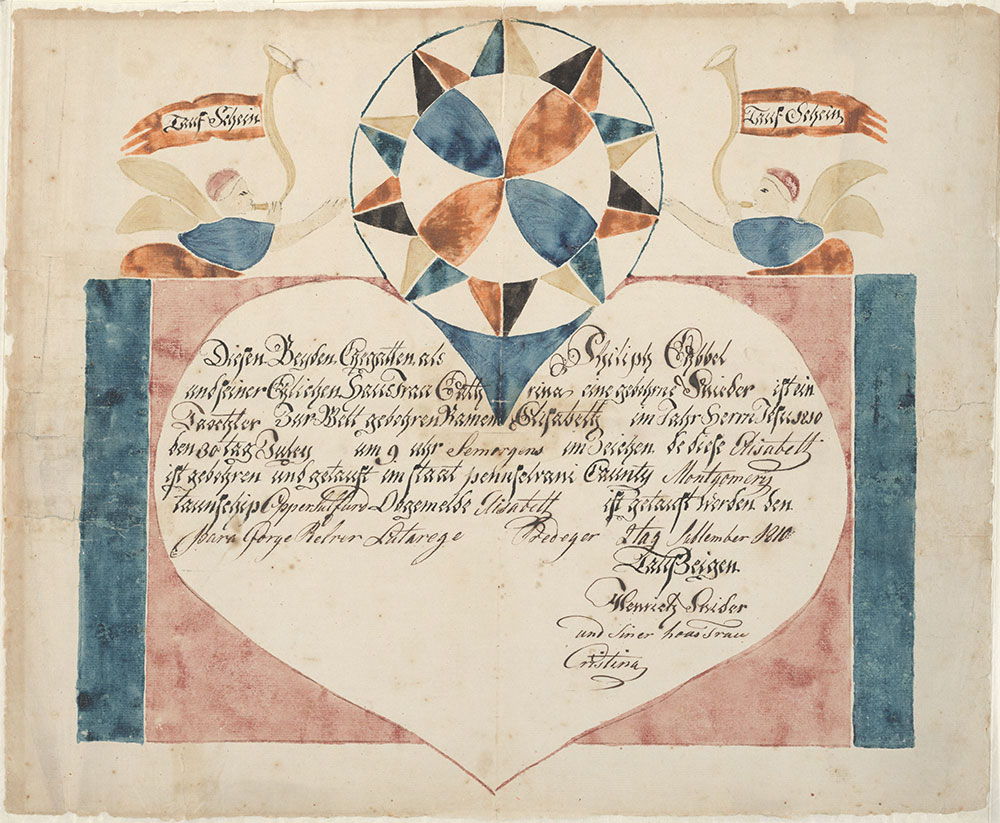 Tauf Schein
Tauf Schein
Diesen Beyden Ehegatten als Philiph Göbel
und seiner Ehlichen Hausfrau Cath rina eine gebohrne Snieder ist ein
Dochter Zur Welt gebohren Namens Elisabeth im Jahr Herrn Jesu 1810
den 30 tag July am 9 uhr Semorgens im Zeichen de diese Elisabeth
ist gebohren und getauft im staat pennselvani Caunty Montgomery
taunschip Oppenhalford Obgemelde Elisabeth ist getauft worden den
Görge Predeger 2 tag September 1810
Taufzeigen
Henrich Snider
und Siner haus frau
Cristina